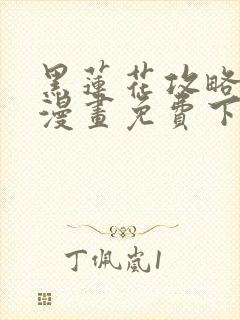 黑蓮花攻略
漫畫免費下
丁佩嵐1